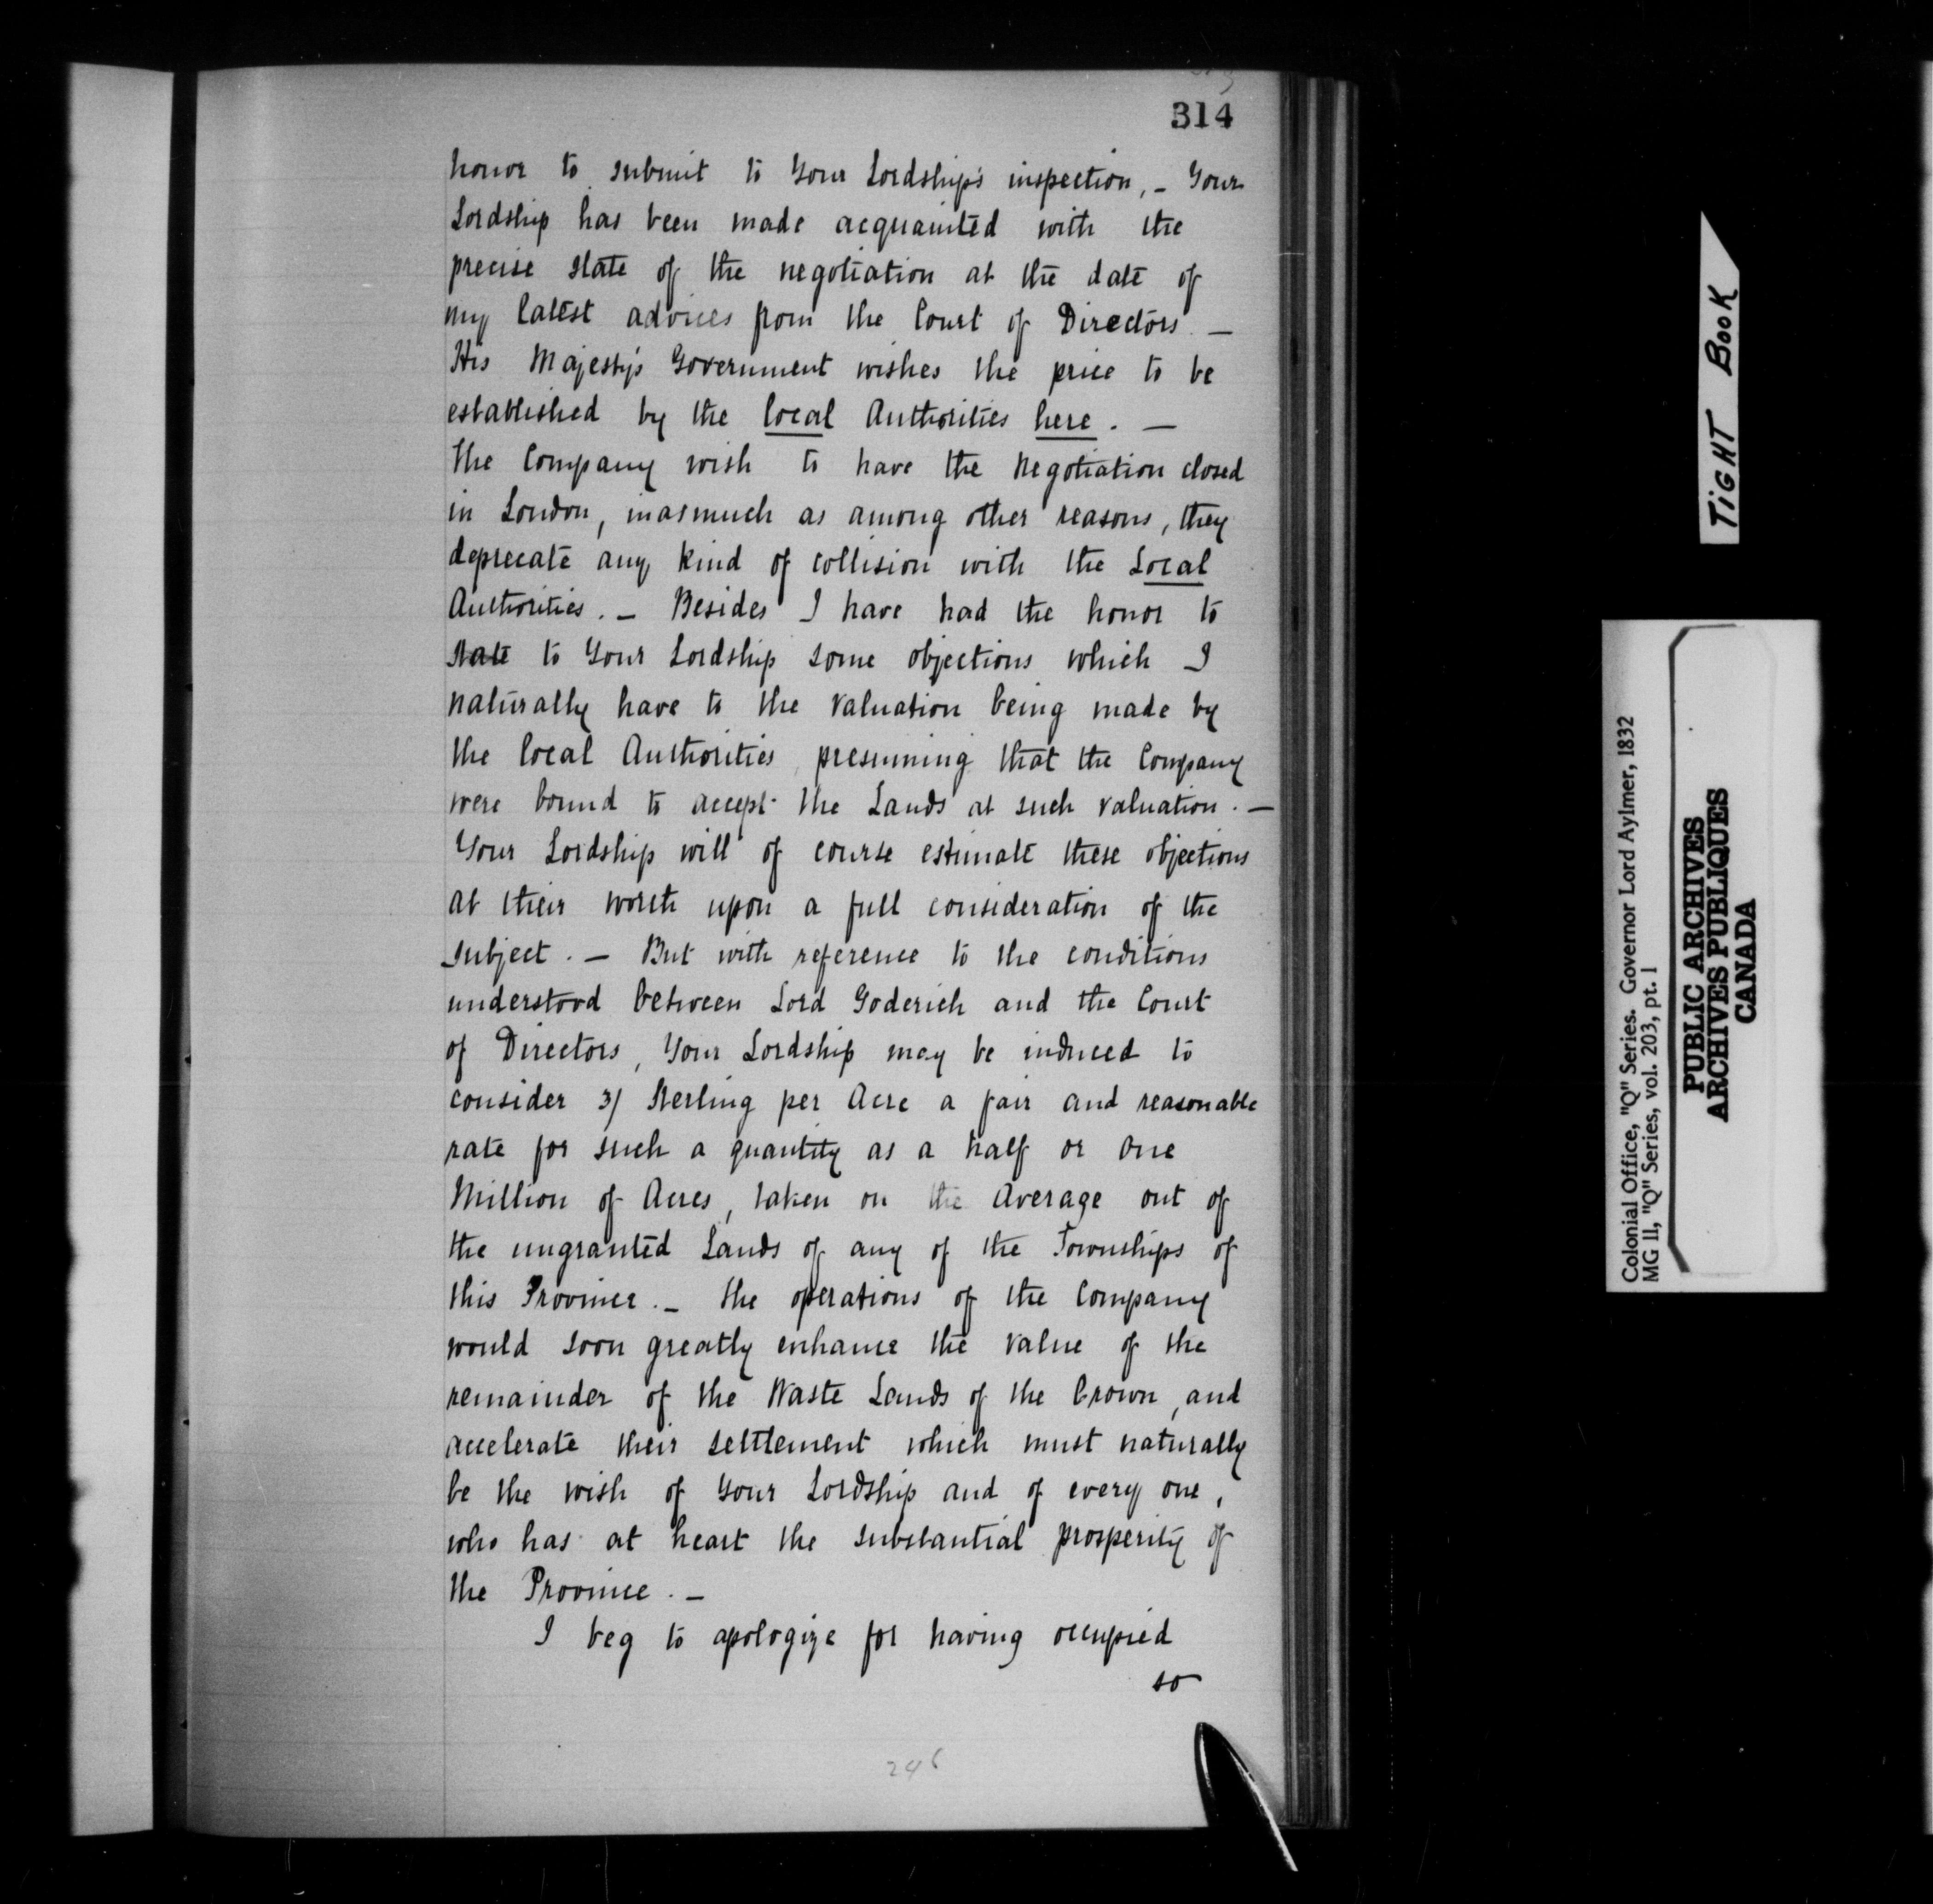 314
honor to submit to Your Lordship's inspection, – Your
Lordship has been made acquainted with the
precise state of the negotiation at the date of
my latest advices from the Court of Directors. –
His Majesty's Government wishes the price to be
established by the local Authorities here. –
The Company wish to have the negotiation closed
in London, inasmuch as among other reasons, they
deprecate any kind of collision with the Local
Authorities. – Besides I have had the honor to
state to Your Lordship some objections which I
naturally have to the valuation being made by
the local Authorities, presuming that the Company
were bound to accept the Lands at such valuation. –
Your Lordship will of course estimate these objections
at their worth upon a full consideration of the
subject. – But with reference to the conditions
understood between Lord Goderich and the Court
of Directors, Your Lordship may be induced to
consider 3/ Sterling per Acre a fair and reasonable
rate for such a quantity as a half or one
Million of Acres, taken on the Average out of
the ungranted Lands of any of the Townships of
this Province. – The operations of the Company
would soon greatly enhance the value of the
remainder of the Waste Lands of the Crown, and
accelerate their settlement which must naturally
be the wish of Your Lordship and of every one,
who has at heart the substantial prosperity of
the Province. –
I beg to apologize for having occupied
so
246
TIGHT BOOK
Colonial Office, "Q" Series. Governor Lord Aylmer, 1832
MG 11, "Q" Series, vol. 203, pt. 1
PUBLIC ARCHIVES
ARCHIVES PUBLIQUES
CANADA